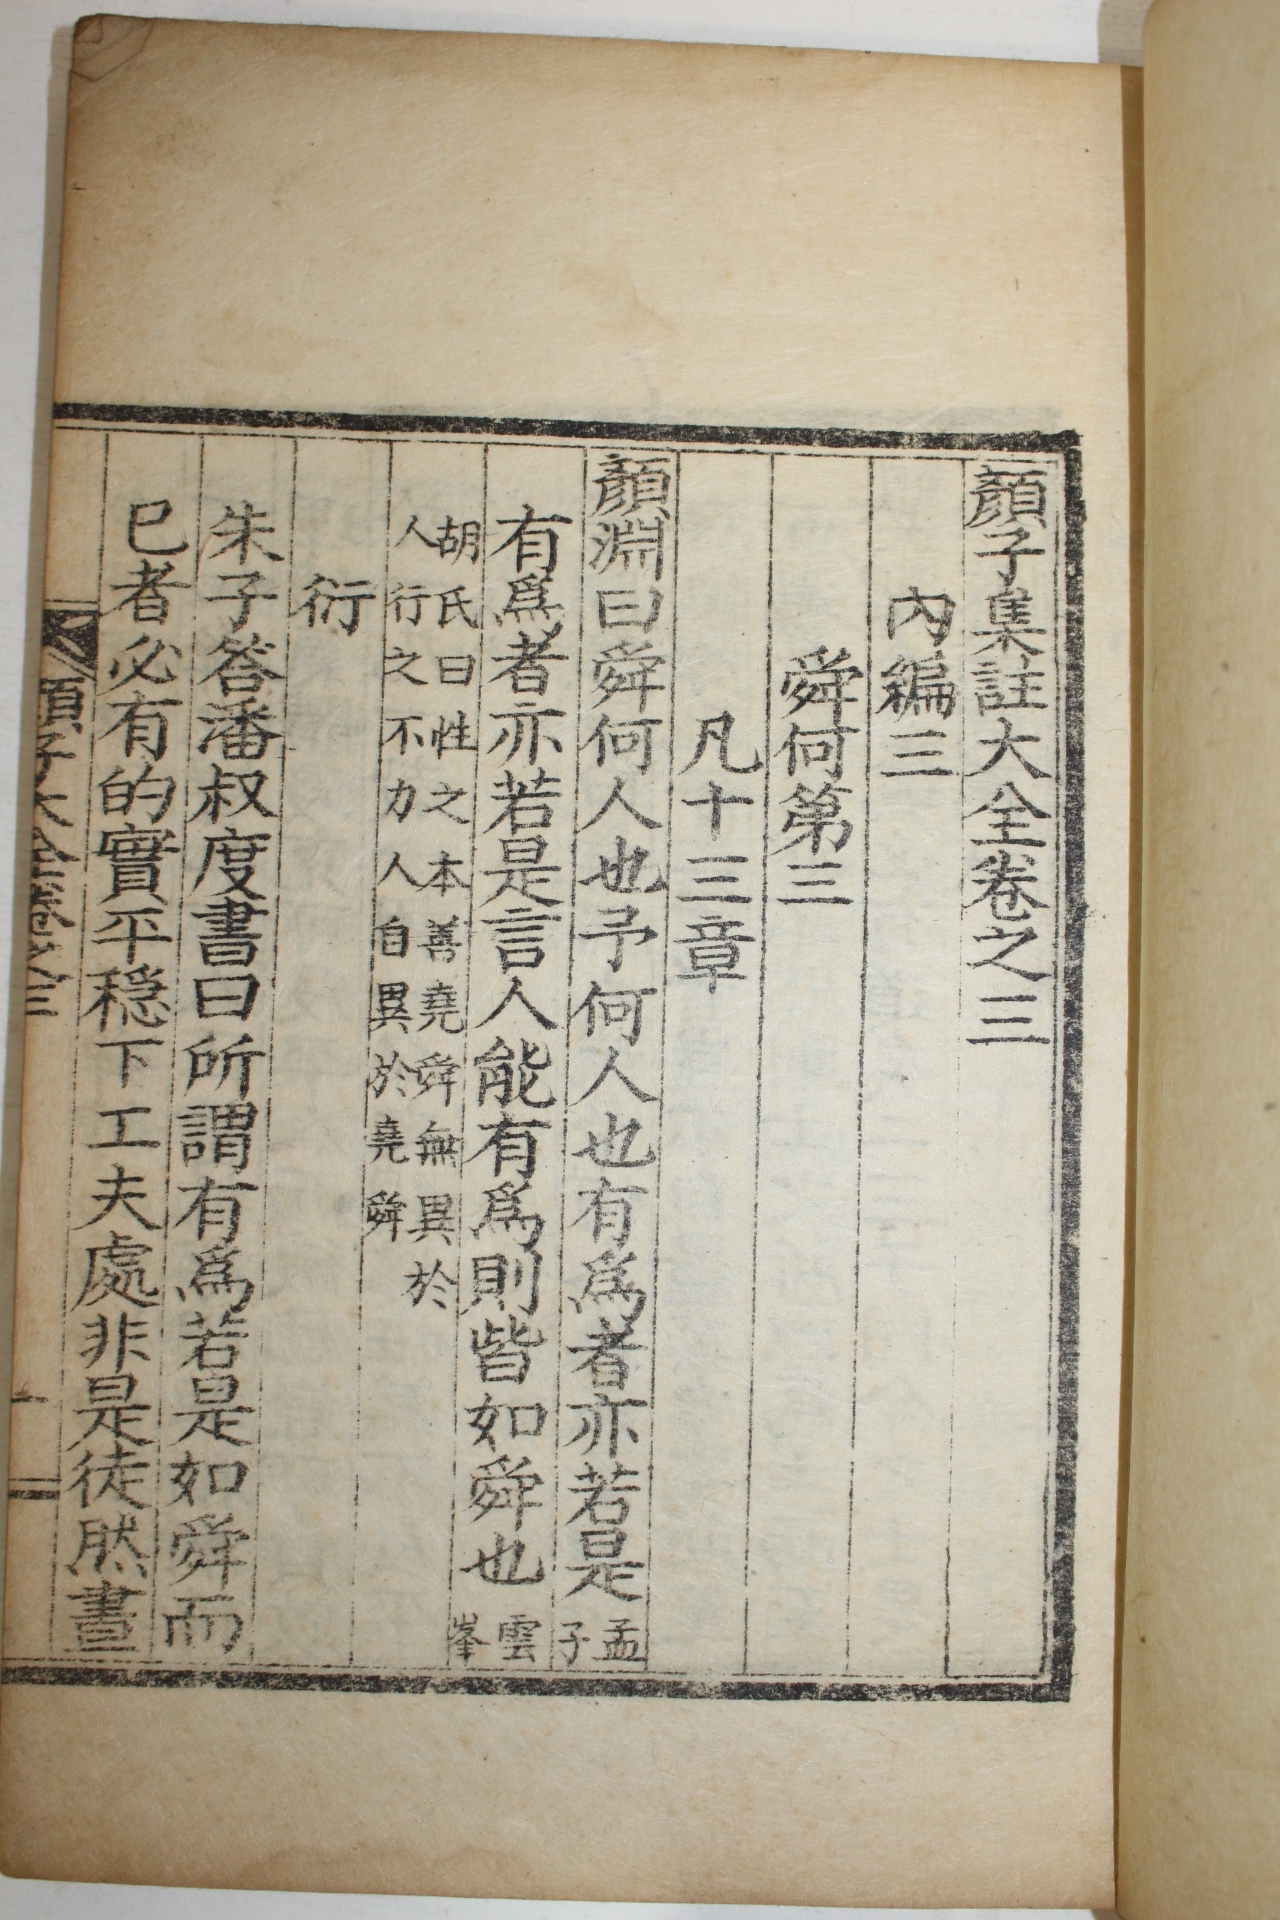 顏子集註大全卷之三
內編三
舜何第三
凡十三章
顏淵曰舜何人也予何人也有爲者亦若是孟子
有爲者亦若是言人能有爲則皆如舜也雲峯
胡氏曰性之本善堯舜無異於
人人行之不力人自異於堯舜
衍
朱子答潘叔度書曰所謂有爲若是如舜而
已者必有的實平穩下工夫處非是徒然晝
顏子大全卷之三
一